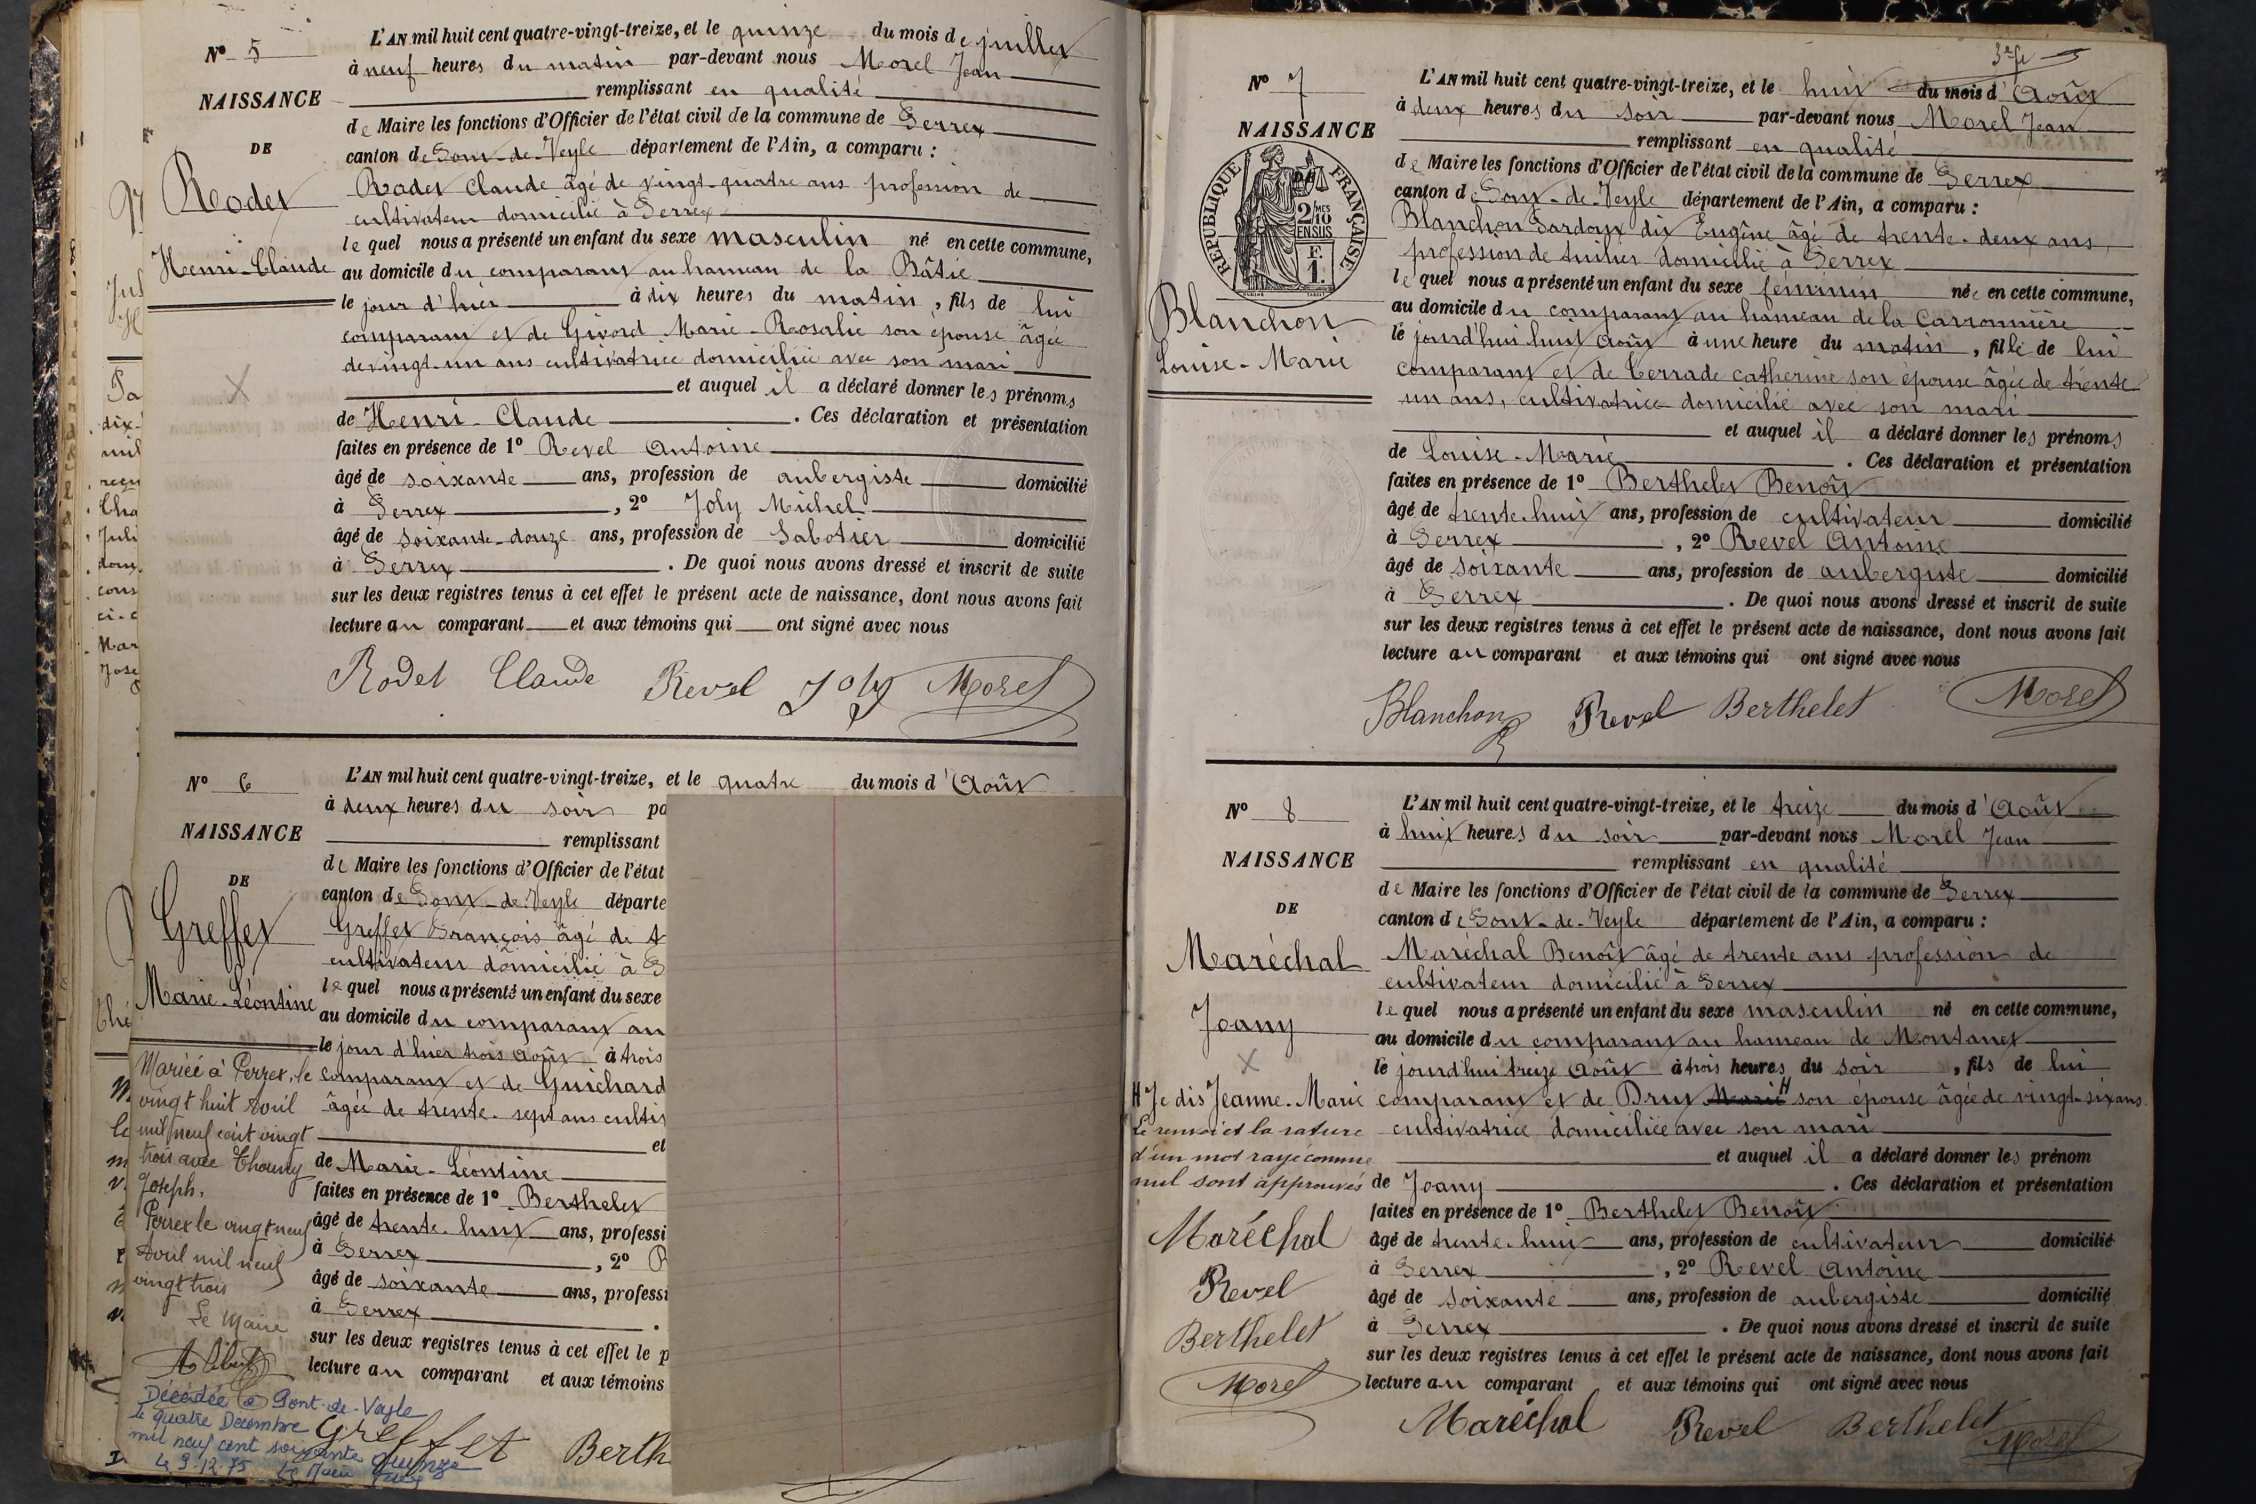 N° 5
NAISSANCE
DE
Rodet
Henri-Claude
L'AN mil huit cent quatre-vingt-treize, et le quinze du mois de juillet
à neuf heures du matin par-devant nous Morel Jean
remplissant en qualité
de Maire les fonctions d'Officier de l'état civil de la commune de Perrex
canton de Pont-de-Veyle département de l'Ain, a comparu :
Rodet Claude âgé de vingt-quatre ans profession de
cultivateur domicilié à Perrex
lequel nous a présenté un enfant du sexe masculin né en cette commune,
au domicile du comparant au hameau de la Bâtie
le jour d'hier à dix heures du matin, fils de lui
comparant et de Givord Marie-Rosalie son épouse âgée
de vingt-un ans cultivatrice domiciliée avec son mari
et auquel il a déclaré donner les prénoms
de Henri-Claude. Ces déclaration et présentation
faites en présence de 1° Revel Antoine
âgé de soixante ans, profession de aubergiste domicilié
à Perrex, 2° Joly Michel
âgé de soixante-douze ans, profession de sabotier domicilié
à Perrex. De quoi nous avons dressé et inscrit de suite
sur les deux registres tenus à cet effet le présent acte de naissance, dont nous avons fait
lecture au comparant et aux témoins qui ont signé avec nous
Rodet Claude Revel Joly Morel
N° 6
NAISSANCE
DE
Greffet
Marie-Léontine
Mariée à Perrex, le
vingt huit Avril
mil neuf cent vingt
trois avec Thouny
Joseph.
Perrex le vingt neuf
Avril mil neuf
vingt trois
Le Maire
Décédée à Pont-de-Veyle
le quatre Décembre
mil neuf cent soixante quinze
Le 9.12.75 Le Maire
L'AN mil huit cent quatre-vingt-treize, et le quatre du mois d'Août
à deux heures du soir pa
remplissant
de Maire les fonctions d'Officier de l'état
canton de Pont-de-Veyle départe
Greffet François âgé de t
cultivateur domicilié à P
lequel nous a présenté un enfant du sexe
au domicile du comparant au
le jour d'hier trois Août à trois
comparant et de Guichard
âgée de trente-sept ans cultiv
et
de Marie-Léontine
faites en présence de 1° Berthelet
âgé de trente-huit ans, professi
à Perrex, 2° R
âgé de soixante ans, professi
à Perrex.
sur les deux registres tenus à cet effet le p
lecture au comparant et aux témoins
Greffet Berth
3e f
N° 7
NAISSANCE
DE
RÉPUBLIQUE FRANÇAISE
2/10MES
EN SUS
F.
1.
Blanchon
Louise-Marie
L'AN mil huit cent quatre-vingt-treize, et le huit du mois d'Août
à deux heures du soir par-devant nous Morel Jean
remplissant en qualité
de Maire les fonctions d'Officier de l'état civil de la commune de Perrex
canton de Pont-de-Veyle département de l'Ain, a comparu :
Blanchon Sardoux dit Eugène âgé de trente-deux ans,
profession de tuilier domicilié à Perrex
lequel nous a présenté un enfant du sexe féminin née en cette commune,
au domicile du comparant au hameau de la Carronnière
le jourd'hui huit Août à une heure du matin, fille de lui
comparant et de Terrade Catherine son épouse âgée de trente
un ans, cultivatrice domicilié avec son mari
et auquel il a déclaré donner les prénoms
de Louise-Marie. Ces déclaration et présentation
faites en présence de 1° Berthelet Benoît
âgé de trente-huit ans, profession de cultivateur domicilié
à Perrex, 2° Revel Antoine
âgé de soixante ans, profession de aubergiste domicilié
à Perrex. De quoi nous avons dressé et inscrit de suite
sur les deux registres tenus à cet effet le présent acte de naissance, dont nous avons fait
lecture au comparant et aux témoins qui ont signé avec nous
Blanchon Revel Berthelet Morel
N° 8
NAISSANCE
DE
Maréchal
Joany
H Je dis Jeanne-Marie
Le renvoi et la rature
d'un mot rayé comme
nul sont approuvés
Maréchal
Revel
Berthelet
Morel
L'AN mil huit cent quatre-vingt-treize, et le treize du mois d'Août
à huit heures du soir par-devant nous Morel Jean
remplissant en qualité
de Maire les fonctions d'Officier de l'état civil de la commune de Perrex
canton de Pont-de-Veyle département de l'Ain, a comparu :
Maréchal Benoît âgé de trente ans profession de
cultivateur domicilié à Perrex
lequel nous a présenté un enfant du sexe masculin né en cette commune,
au domicile du comparant au hameau de Montanet
le jourd'hui treize Août à trois heures du soir, fils de lui
comparant et de Drut Marie H son épouse âgée de vingt-six ans
cultivatrice domiciliée avec son mari
et auquel il a déclaré donner les prénom
de Joany. Ces déclaration et présentation
faites en présence de 1° Berthelet Benoît
âgé de trente-huit ans, profession de cultivateur domicilié
à Perrex, 2° Revel Antoine
âgé de soixante ans, profession de aubergiste domicilié
à Perrex. De quoi nous avons dressé et inscrit de suite
sur les deux registres tenus à cet effet le présent acte de naissance, dont nous avons fait
lecture au comparant et aux témoins qui ont signé avec nous
Maréchal Revel Berthelet Morel